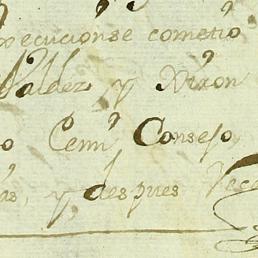 ecucionse cometio
Valdez y Nixon
o Cenn.º Consejo
as, y despues Veci